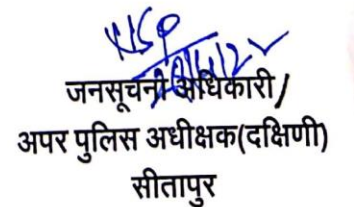 जनसूचना अधिकारी/
अपर पुलिस अधीक्षक(दक्षिणी)
सीतापुर